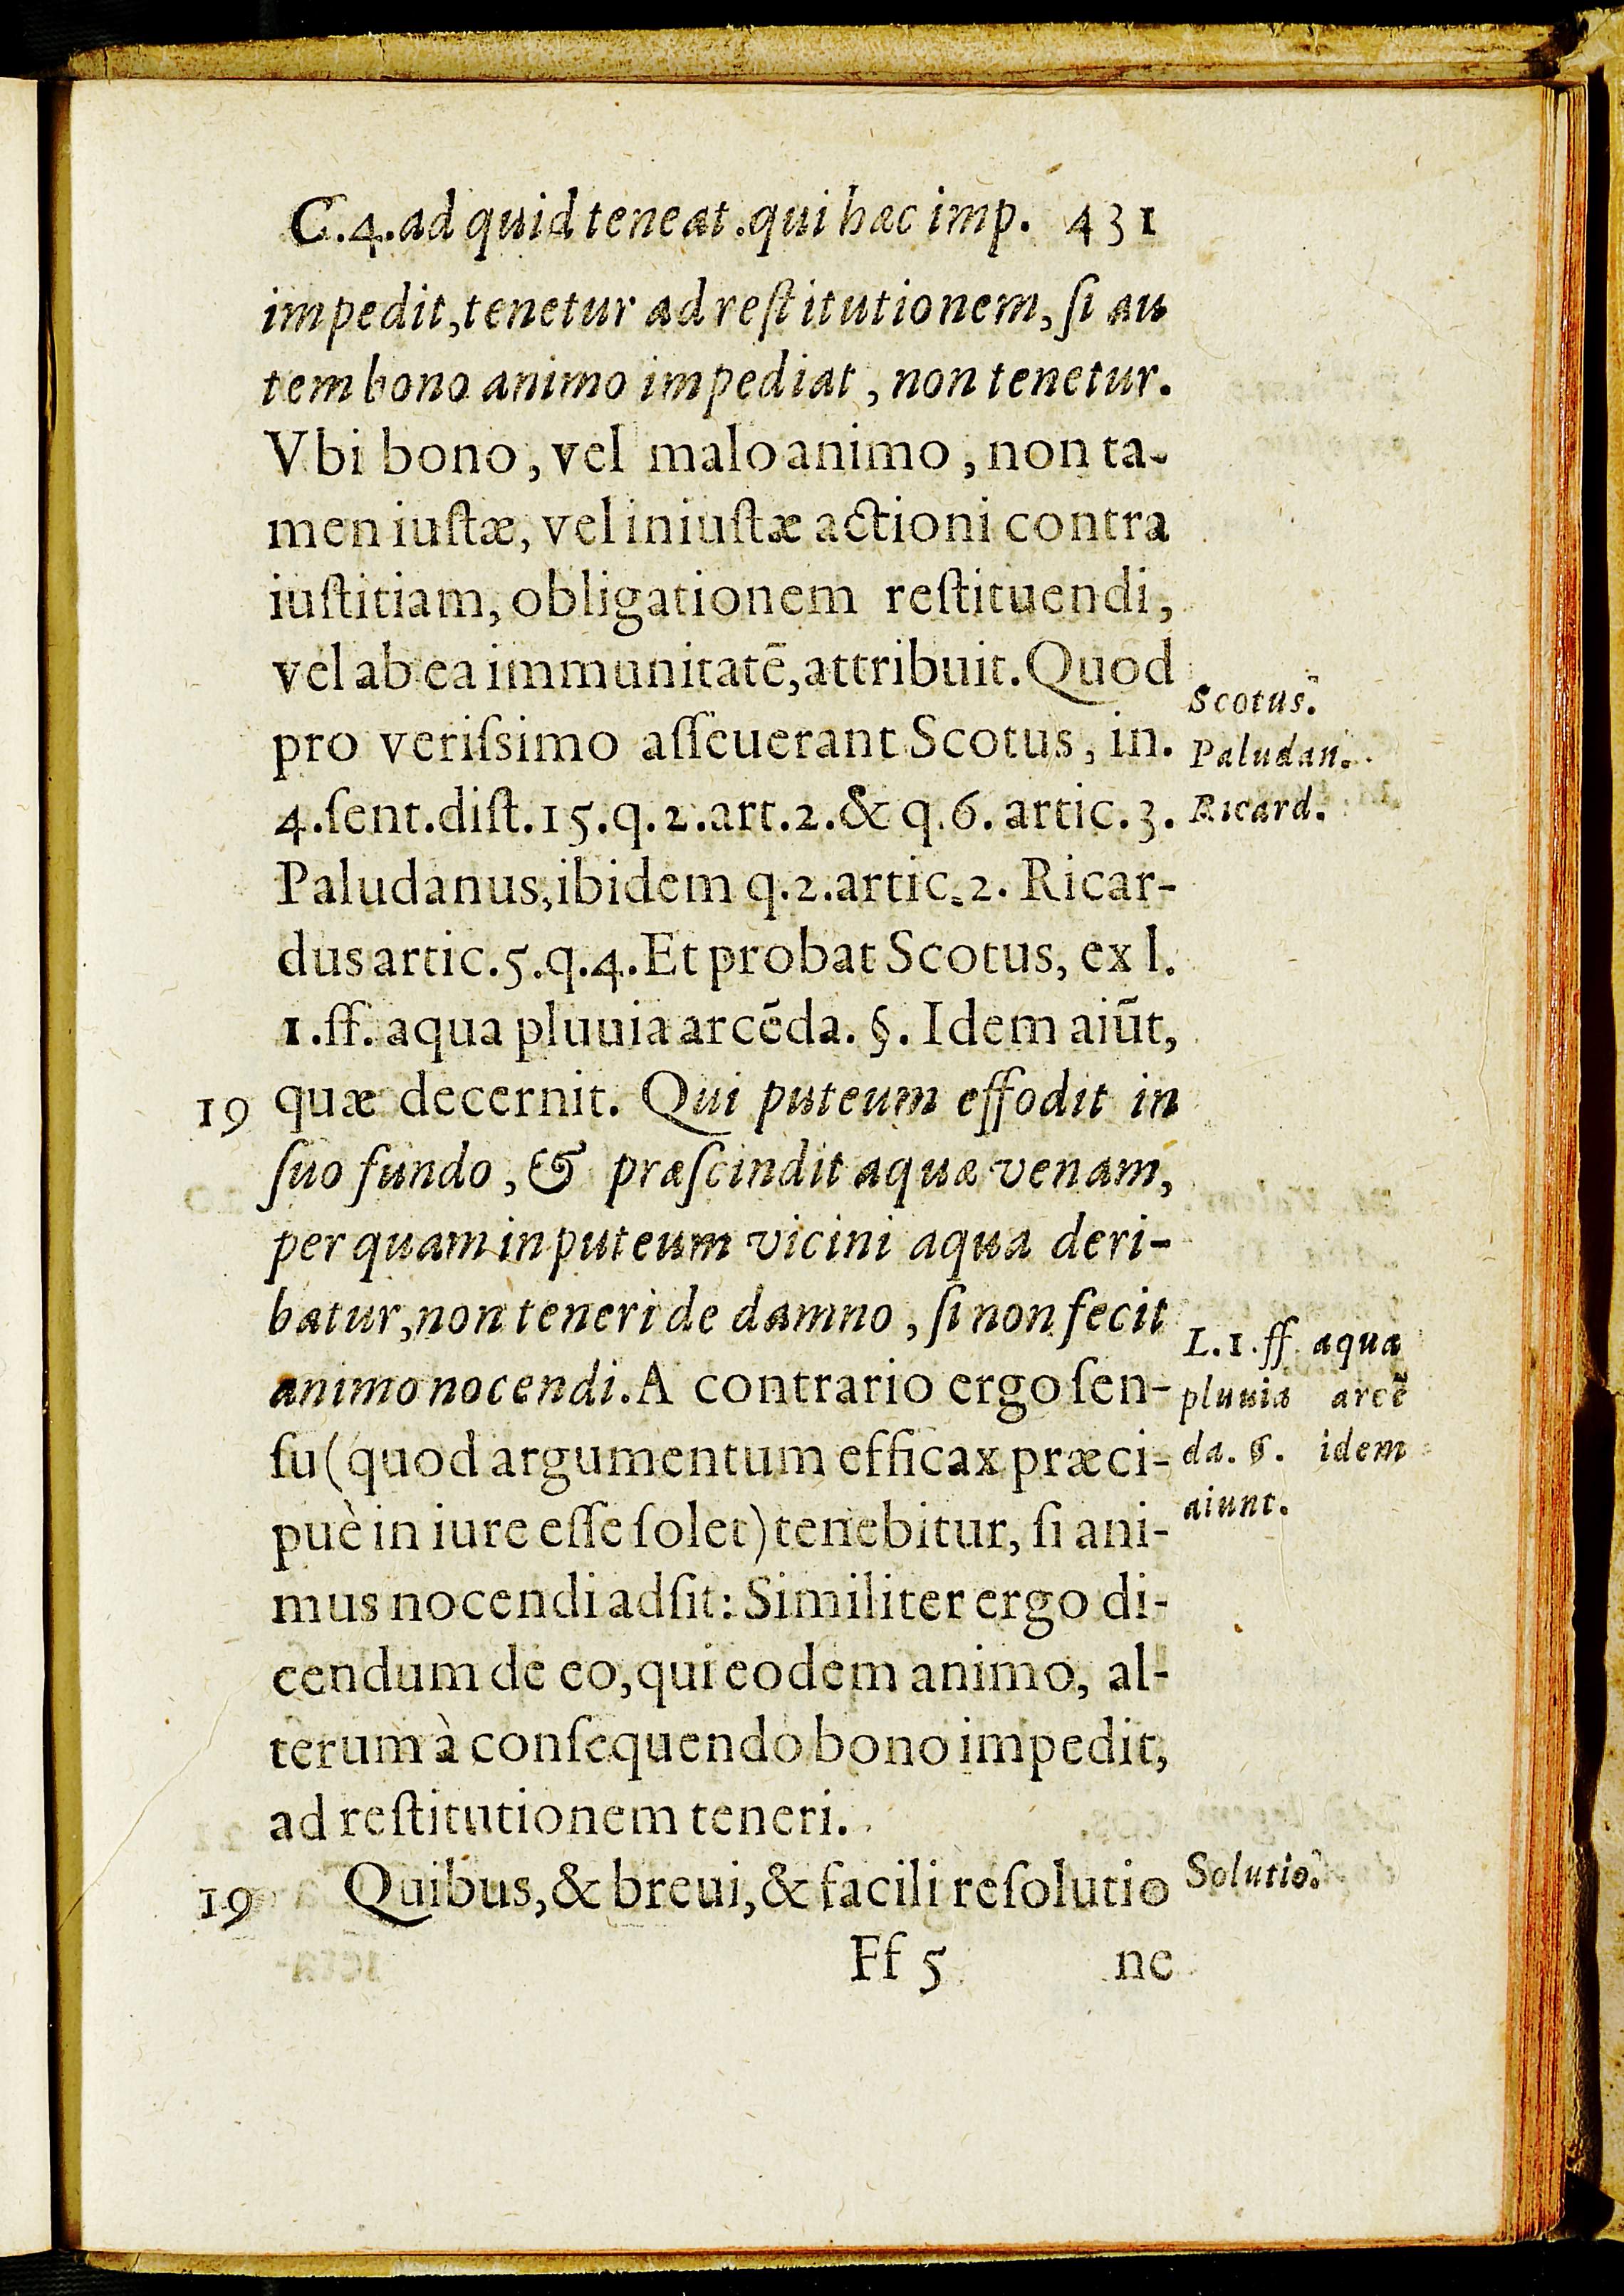 C.4.ad quid teneat.qui hæc imp. 431
impedit,tenetur ad reſtitutionem, ſi au
tem bono animo impediat, non tenetur.
Vbi bono, vel malo animo, non ta-
men iuſtæ, vel iniuſtæ actioni contra
iuſtitiam, obligationem reſtituendi,
vel ab ea immunitatē,attribuit. Quod
pro veriſsimo aſſeuerant Scotus, in.
4.ſent.diſt.15.q.2.art.2.& q.6. artic.3.
Paludanus,ibidem q.2.artic.2. Ricar-
dus artic.5.q.4. Et probat Scotus, ex l.
1.ff. aqua pluuia arcēda. §. Idem aiūt,
19 quæ decernit. Qui puteum effodit in
ſuo fundo, & præſcindit aquæ venam,
per quam in puteum vicini aqua deri-
batur,non teneri de damno, ſi non fecit
animo nocendi. A contrario ergo ſen-
ſu (quod argumentum efficax præci-
puè in iure eſſe ſolet) tenebitur, ſi ani-
mus nocendi adſit: Similiter ergo di-
cendum de eo,qui eodem animo, al-
terum à conſequendo bono impedit,
ad reſtitutionem teneri.
19 Quibus,& breui,& facili reſolutio
Ff 5 ne
Scotus.
Paludan.
Ricard.
L.1.ff aqua
pluuia arcē
da. §. idem
aiunt.
Solutio.